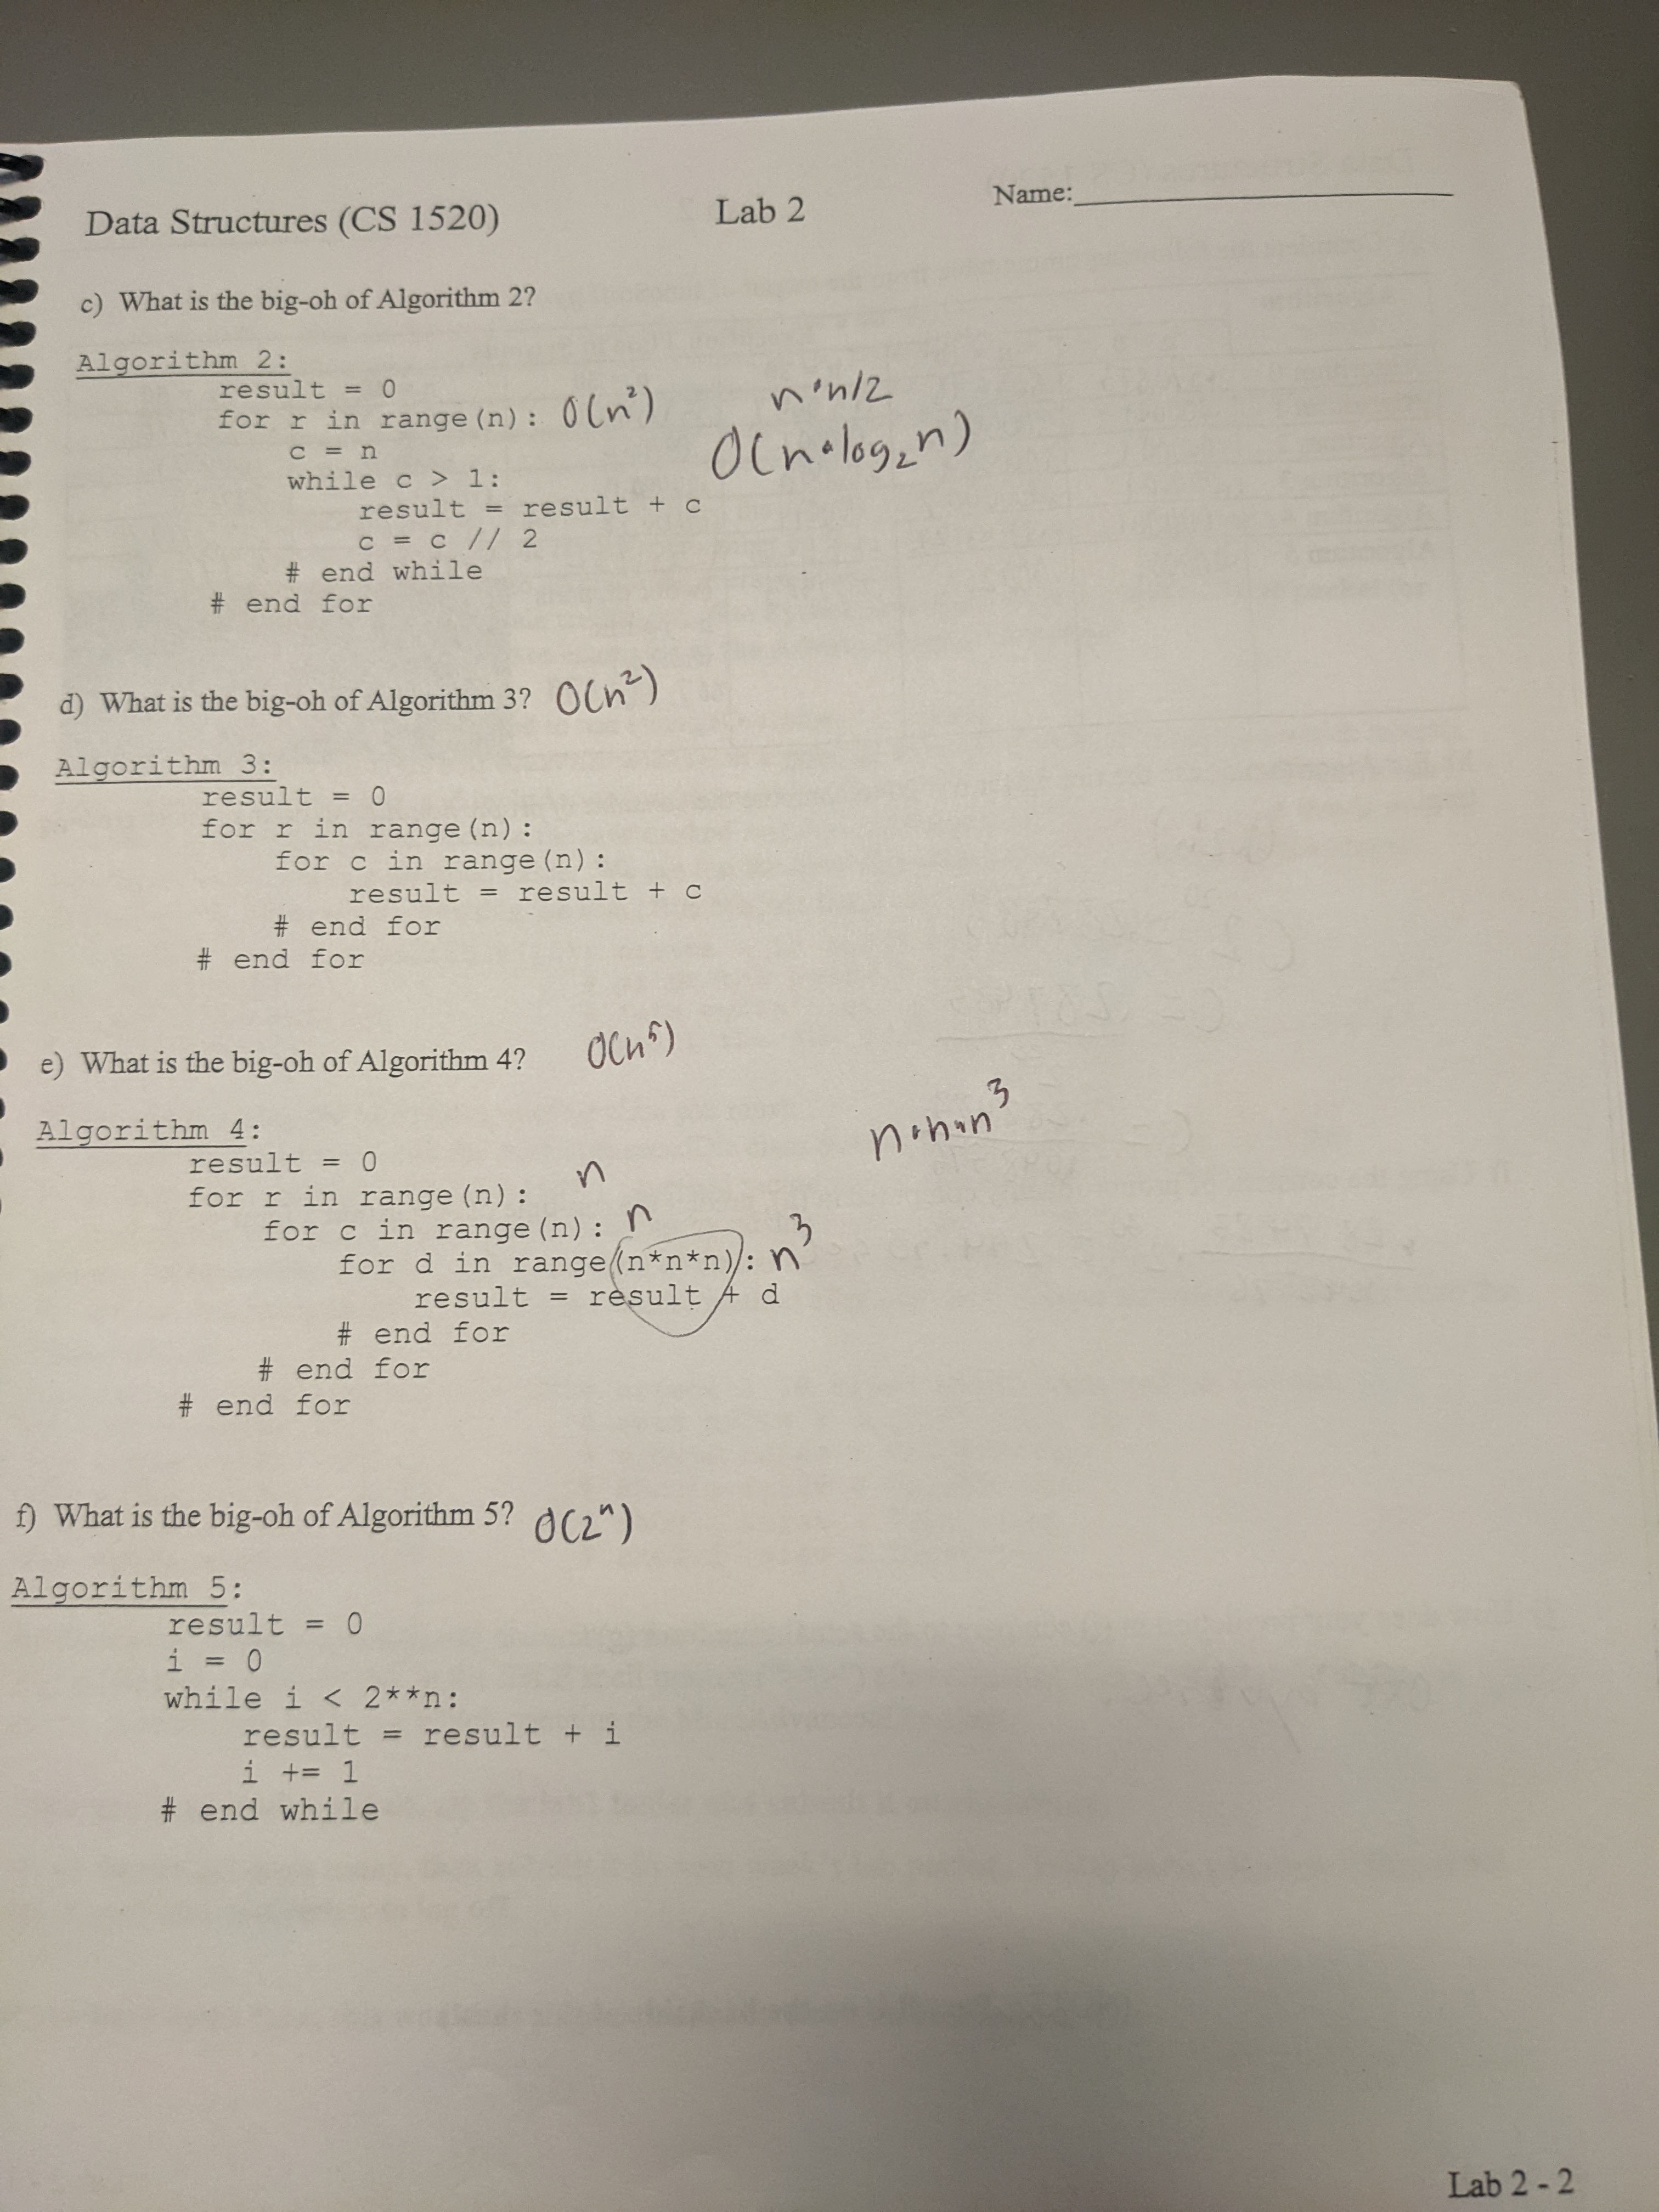 Data Structures (CS 1520) Lab 2 Name:
c) What is the big-oh of Algorithm 2?
Algorithm 2:
result = 0
for r in range(n): O(n²) n*n/2
c = n O(n*log₂n)
while c > 1:
result = result + c
c = c // 2
# end while
# end for
d) What is the big-oh of Algorithm 3? O(n²)
Algorithm 3:
result = 0
for r in range(n):
for c in range(n):
result = result + c
# end for
# end for
e) What is the big-oh of Algorithm 4? O(n⁵)
Algorithm 4: n*n*n³
result = 0
for r in range(n): n
for c in range(n): n
for d in range(n*n*n): n³
result = result + d
# end for
# end for
# end for
f) What is the big-oh of Algorithm 5? O(2ⁿ)
Algorithm 5:
result = 0
i = 0
while i < 2**n:
result = result + i
i += 1
# end while
Lab 2 - 2